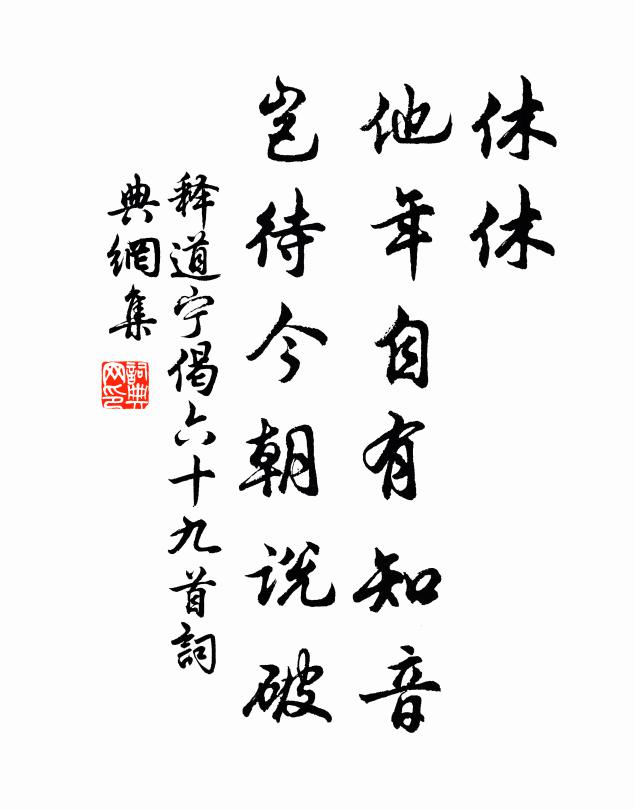 休休
他年自有知音
岂待今朝说破
释道宁偈六十九首詞
典網集
詞典网印